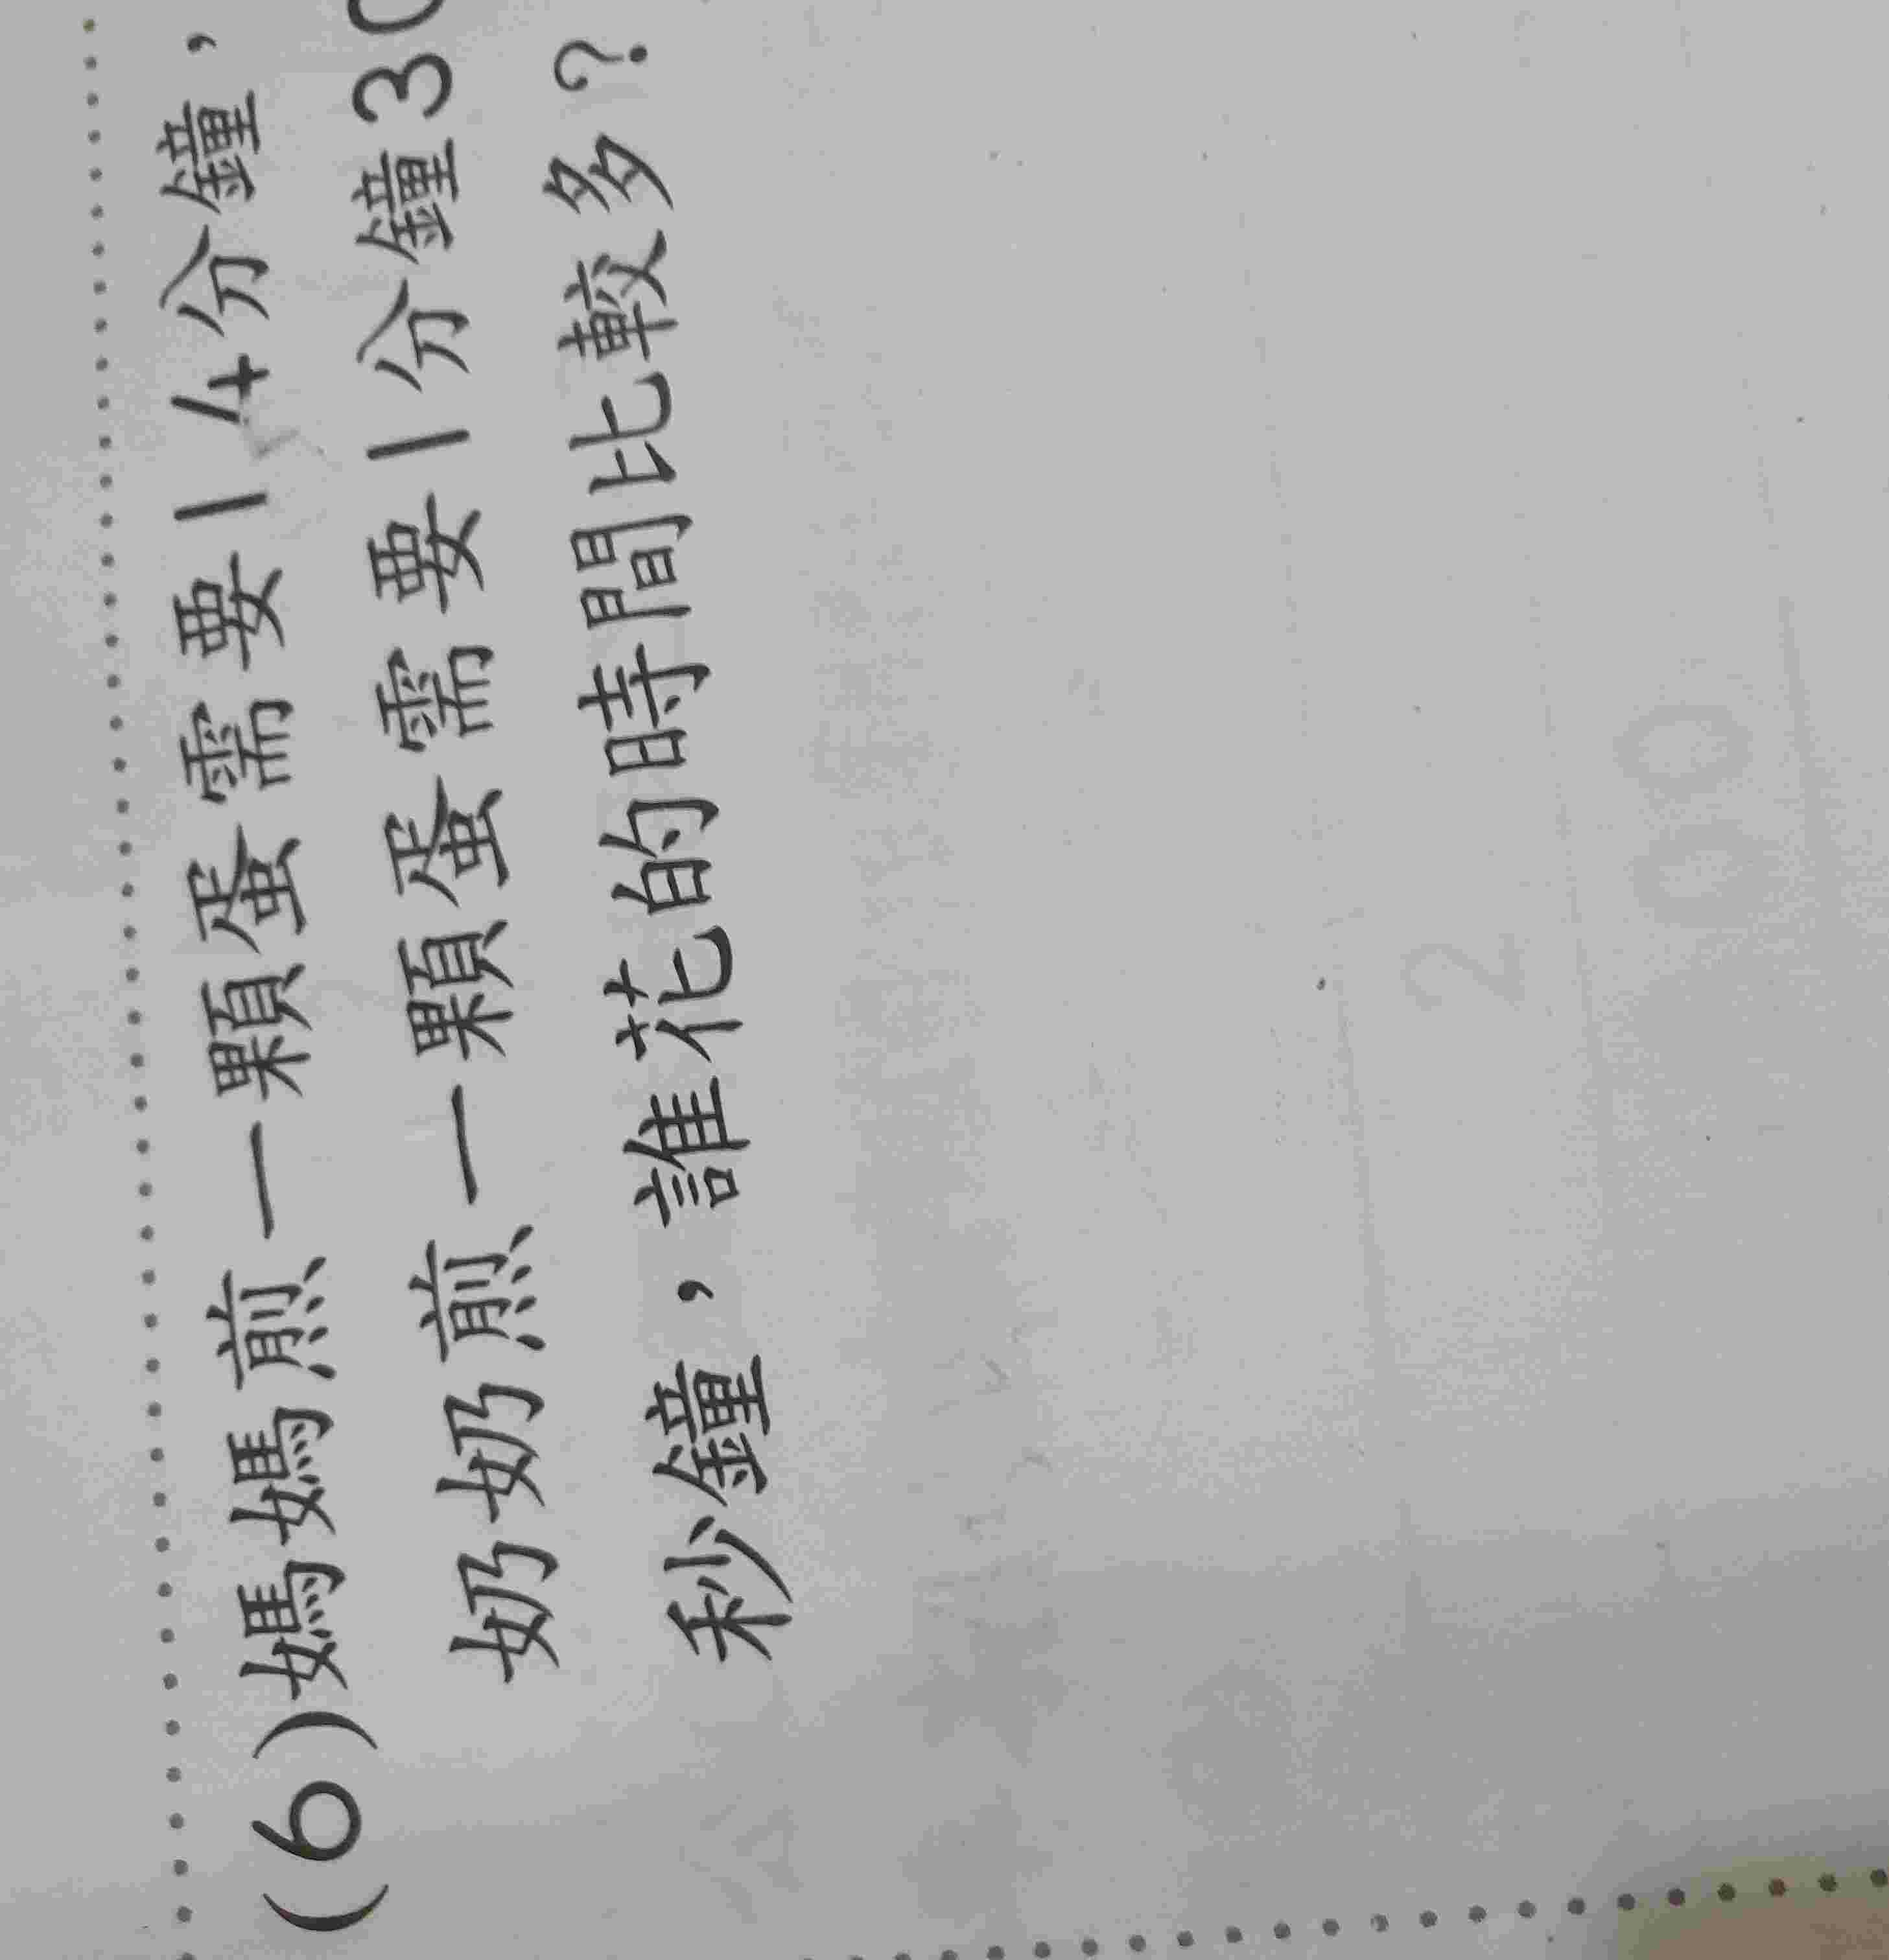 (6)媽媽煎一顆蛋需要14分鐘，
奶奶煎一顆蛋需要1分鐘30
秒鐘，誰花的時間比較多？